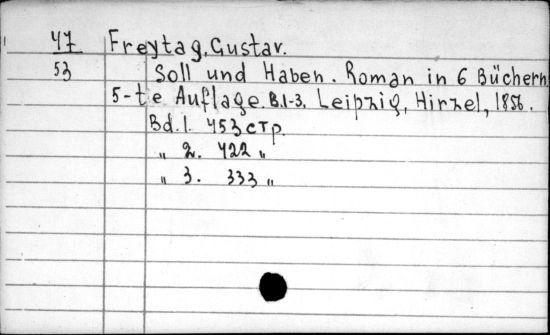 47 Freytag, Gustav.
53 Soll und Haben. Roman in 6 Büchern
5-te Auflage. B.1-3. Leipzig, Hirzel, 1856.
Bd. 1. 453 стр.
„ 2. 422 „
„ 3. 333 „